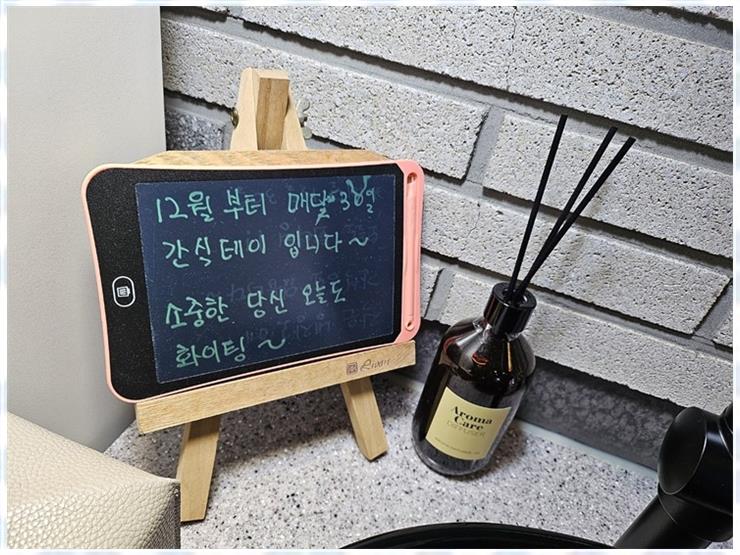 12월 부터 매달 30일
간식데이 입니다~
소중한 당신 오늘도
화이팅~
Livart
Aroma
Care
DIFFUSER